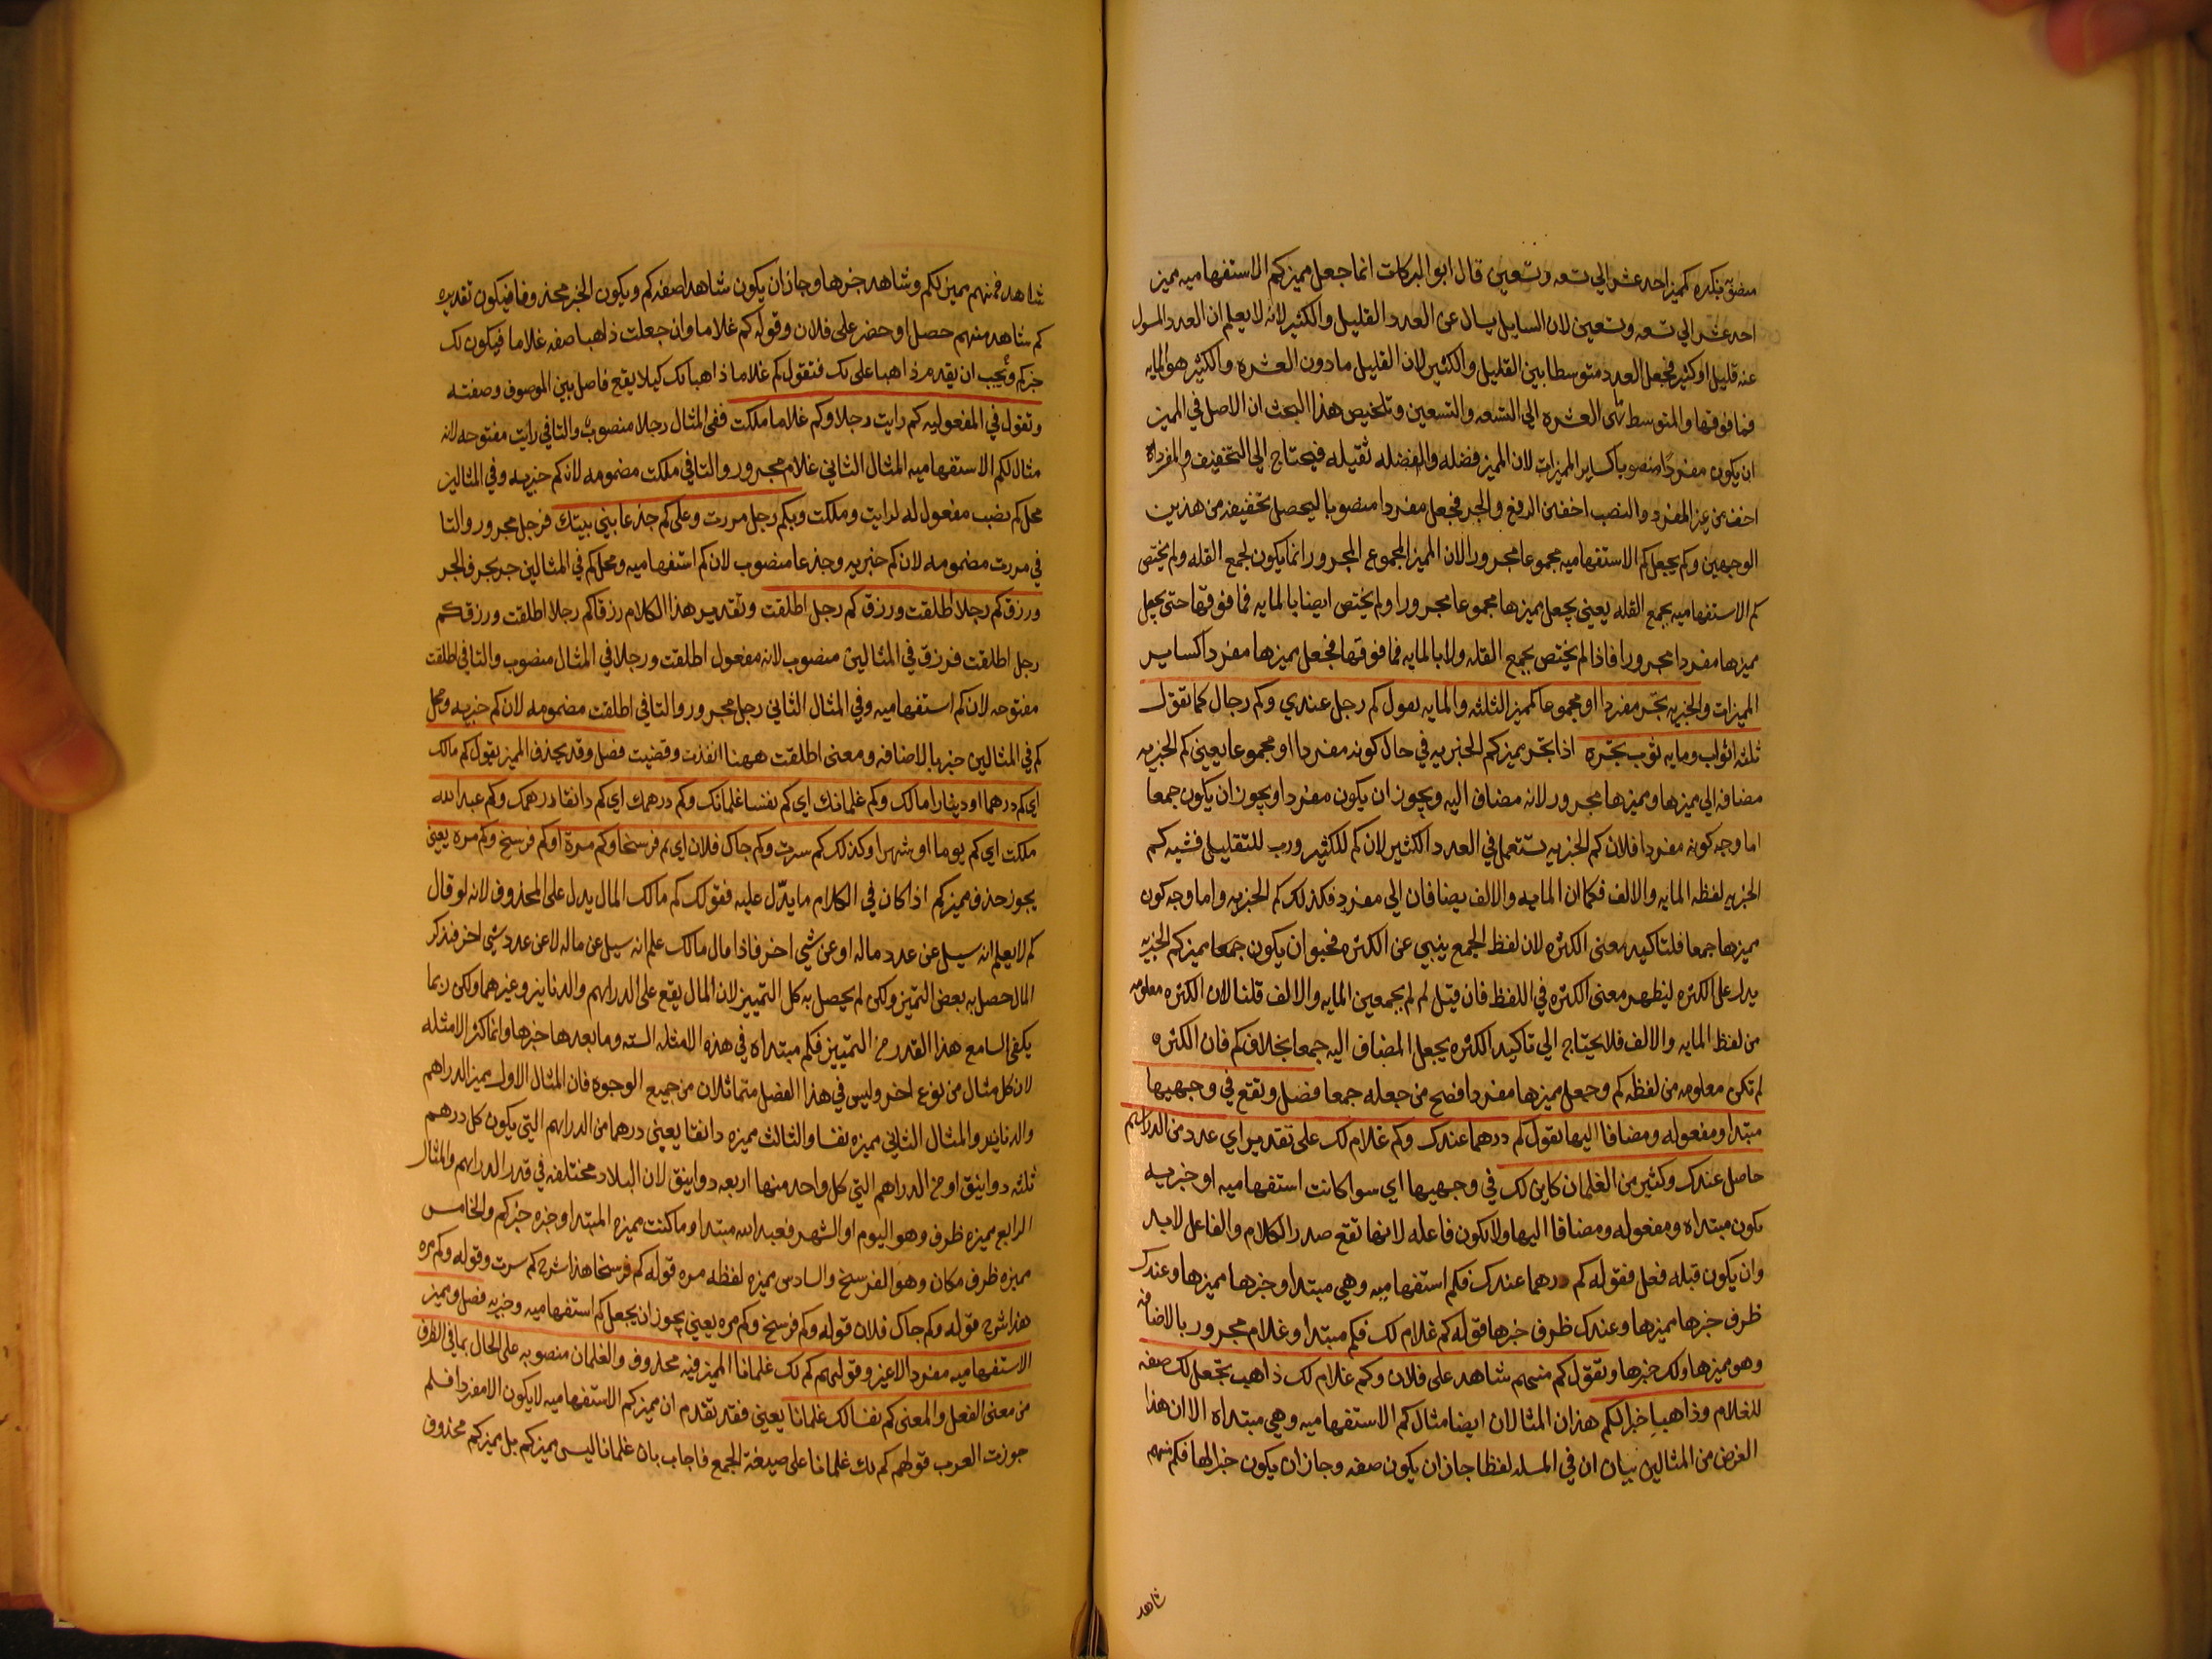 منصوب نكره كمميز احد عشر الي تسعه وتسعين قال ابو البركات انما جعل مميز كم الاستفهاميه مميز
احد عشر الي تسعه وتسعين لان السايل يسال عن العدد القليل والكثير لانه لا يعلم ان العدد المسول
عنه قليل او كثير فجعل العدد متوسطا بين القليل والكثير لان القليل ما دون العشره والكثير هو المايه
فما فوقها والمتوسط من العشره الي التسعه والتسعين وتلخيص هذا البحث ان الاصل في المميز
ان يكون مفردا منصوبا كساير المميزات لان المميز فضله والفضله ثقيله فيحتاج الي التخفيف والمفرد
اخف من غير المفرد والنصب اخف من الرفع والجر فجعل مفردا منصوبا ليحصل تخفيفه من هذين
الوجهين ولم يجعل كم الاستفهاميه مجموعا مجرورا لان المميز المجموع المجرور انما يكون لجمع القله ولم يختص
كم الاستفهاميه بجمع القله يعني يجعل مميزها مجموعا مجرورا ولم يختص ايضا بالمايه فما فوقها حتي يجعل
مميزها مفردا مجرورا فاذا لم يختص بجمع القله ولا بالمايه فما فوقها فجعل مميزها مفردا كساير
المميزات والخبريه تجر مفردا او مجموعا كمميز الثلثه والمايه تقول كم رجل عندي وكم رجال كما تقول
ثلثه اثواب ومايه ثوب بجره اذا تجر مميز كم الخبريه في حال كونه مفردا او مجموعا يعني كم الخبريه
مضافه الي مميزها ومميزها مجرور لانه مضاف اليه ويجوز ان يكون مفردا ويجوز ان يكون جمعا
اما وجه كونه مفردا فلان كم الخبريه يستعمل في العدد الكثير لان كم للكثير ورب للتقليل فشبه كم
الخبريه لفظه المايه والالف فكما ان المايه والالف يضافان الي مفرد فكذلك كم الخبريه واما وجه كون
مميزها جمعا فلتاكيد معني الكثره لان لفظ الجمع ينبي عن الكثره ان يكون جمعا مميز كم الخبريه
يدل علي الكثره ليظهر معني الكثره في اللفظ فان قيل لم لم يجمع مميز المايه والالف قلنا لان الكثره معلومه
من لفظ المايه والالف فلا يحتاج الي تاكيد الكثره بجعل المضاف اليه جمعا بخلاف كم فان الكثره
لم تكن معلومه من لفظه كم وجعل مميزها مفردا افصح من جعله جمعا فصل وتقع في وجهيها
مبتداه ومفعوله ومضافا اليها تقول كم درهما عندك وكم غلام لك علي تقدير اي عدد من الدراهم
حاصل عندك وكثير من الغلمان كاين لك في وجهيها اي سوا كانت استفهاميه او خبريه
تكون مبتداه ومفعوله ومضافا اليها ولا تكون فاعله لانها تقع صدر الكلام والفاعل لابد
وان يكون قبله فعل فقوله كم درهما عندك فكم استفهاميه وهي مبتدا وخبرها مميزها وعندك
ظرف خبرها مميزها وعندك ظرف خبرها قوله كم غلام لك فكم مبتدا وغلام مجرور بالاضافه
وهو مميزها ولك خبرها وتقول كم منهم شاهد علي فلان وكم غلام لك ذاهب تجعل لك صفه
للغلام وذاهبا خبرا لكم هذان المثالان ايضا مثال كم الاستفهاميه وهي مبتداه الا ان هذا
الغرض من المثالين بيان ان في المسله لفظا جاز ان يكون صفه وجاز ان يكون خبرا لها فكم منهم
شاهد
شاهد فمنهم مميز لكم وشاهد خبرها وجاز ان يكون شاهد صفه كم ويكون الخبر محذوفا فيكون تقديره
كم شاهد منهم حصل او حضر علي فلان وقوله كم غلاما وان جعلت ذاهبا صفه غلاما فيكون لك
خبر كم ويجب ان يقدم ذاهبا علي لك فتقول كم غلاما ذاهبا لك كيلا يقع فاصل بين الموصوف وصفته
وتقول في المفعوليه كم رايت رجلا وكم غلاما ملكت ففي المثال رجلا منصوب والتا في رايت مفتوحه لانه
مثال لكم الاستفهاميه المثال الثاني غلام مجرور والتا في ملكت مضمومه لان كم خبريه وفي المثالين
محل كم نصب مفعول له لرايت وملكت وبكم رجل مررت وعلي كم جذعا بني بيتك فرجل مجرور والتا
في مررت مضمومه لان كم خبريه وجذعا منصوب لان كم استفهاميه ومحل كم في المثالين جر بحرف الجر
ورزق كم رجلا اطلقت ورزق كم رجل اطلقت وتقدير هذا الكلام رزق كم رجلا اطلقت ورزق كم
رجل اطلقت فرزق في المثالين منصوب لانه مفعول اطلقت ورجلا في المثال منصوب والتا في اطلقت
مفتوحه لان كم استفهاميه وفي المثال الثاني رجل مجرور والتا في اطلقت مضمومه لان كم خبريه ومحل
كم في المثالين جر بالاضافه ومعني اطلقت ههنا انفذت وقضيت فصل وقد يحذف المميز يقول كم مالك
اي كم درهما او دينارا مالك وكم غلمانك اي كم نفسا غلمانك وكم درهمك اي كم دانقا درهمك وكم عبد الله
ملكت اي كم يوما او شهرا وكذلك كم سرت وكم جاك فلان اي كم فرسخا وكم مرة او كم فرسخ وكم مره يعني
يجوز حذف مميز كم اذا كان في الكلام ما يدل عليه فقولك كم مالك المال يدل علي المحذوف لانه لو قال
كم لا يعلم انه سيل عن عدد ماله او عن شي اخر فاذا قال مالك علم انه سيل عن ماله لا عن عدد شي اخر فذكر
المال حصل به بعض التميز ولكن لم يحصل به كل التمييز لان المال يقع علي الدراهم والدنانير وغيرهما ولكن ربما
يكفي السامع هذا القدر من التمييز فكم مبتداه في هذه الامثله السته وما بعدها خبرها وانما كثر الامثله
لان كل مثال من نوع اخر وليس في هذا الفصل متماثلان من جميع الوجوه فان المثال الاول مميز الدراهم
والدنانير والمثال الثاني مميزه نفسا والثالث مميزه دانقا يعني درهما من الدراهم التي يكون كل درهم
ثلثه دوانيق او من الدراهم التي كل واحد منها اربعه دوانيق لان البلاد مختلفه في قدر الدراهم والمثال
الرابع مميزه ظرف وهو اليوم او الشهر فعبد الله مبتدا وماكث مميزه المبتدا وخبره خبر كم والخامس
مميزه ظرف مكان وهو الفرسخ والسادس مميزه لفظه مره قوله كم فرسخا هذا شرح كم سرت وقوله وكم مره
هذا شرح قوله وكم جاك فلان قوله وكم فرسخ وكم مره يعني يجوز ان يجعل كم استفهاميه وخبريه فصل ومميز
الاستفهاميه مفرد لا غير وقولهم كم لك غلمانا المميز فيه محذوف والغلمان منصوبه علي الحال بما في الظرف
من معني الفعل والمعني كم نفسا لك غلمانا يعني فقد تقدم ان مميز كم الاستفهاميه لا يكون الا مفردا فلم
جوزت العرب قولهم كم لك غلمانا علي صيغة الجمع فاجاب بان غلمانا ليس مميز كم بل مميز كم محذوف